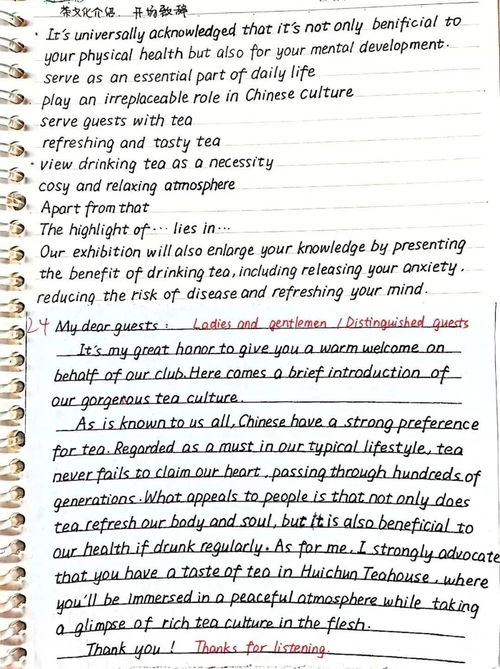 茶文化介绍. 开幕致辞
· It's universally acknowledged that it's not only benificial to
your physical health but also for your mental development.
serve as an essential part of daily life
play an irreplaceable role in Chinese culture
serve guests with tea
refreshing and tasty tea
· view drinking tea as a necessity
cosy and relaxing atmosphere
Apart from that
The highlight of ··· lies in ···
Our exhibition will also enlarge your knowledge by presenting
the benefit of drinking tea, including releasing your anxiety,
reducing the risk of disease and refreshing your mind.
24 My dear guests: Ladies and gentlemen / Distinguished guests
It's my great honor to give you a warm welcome on
behalf of our club. Here comes a brief introduction of
our gorgeous tea culture.
As is known to us all, Chinese have a strong preference
for tea. Regarded as a must in our typical lifestyle, tea
never fails to claim our heart, passing through hundreds of
generations. What appeals to people is that not only does
tea refresh our body and soul, but it is also beneficial to
our health if drunk regularly. As for me, I strongly advocate
that you have a taste of tea in Huichun Teahouse, where
you'll be immersed in a peaceful atmosphere while taking
a glimpse of rich tea culture in the flesh.
Thank you! Thanks for listening.